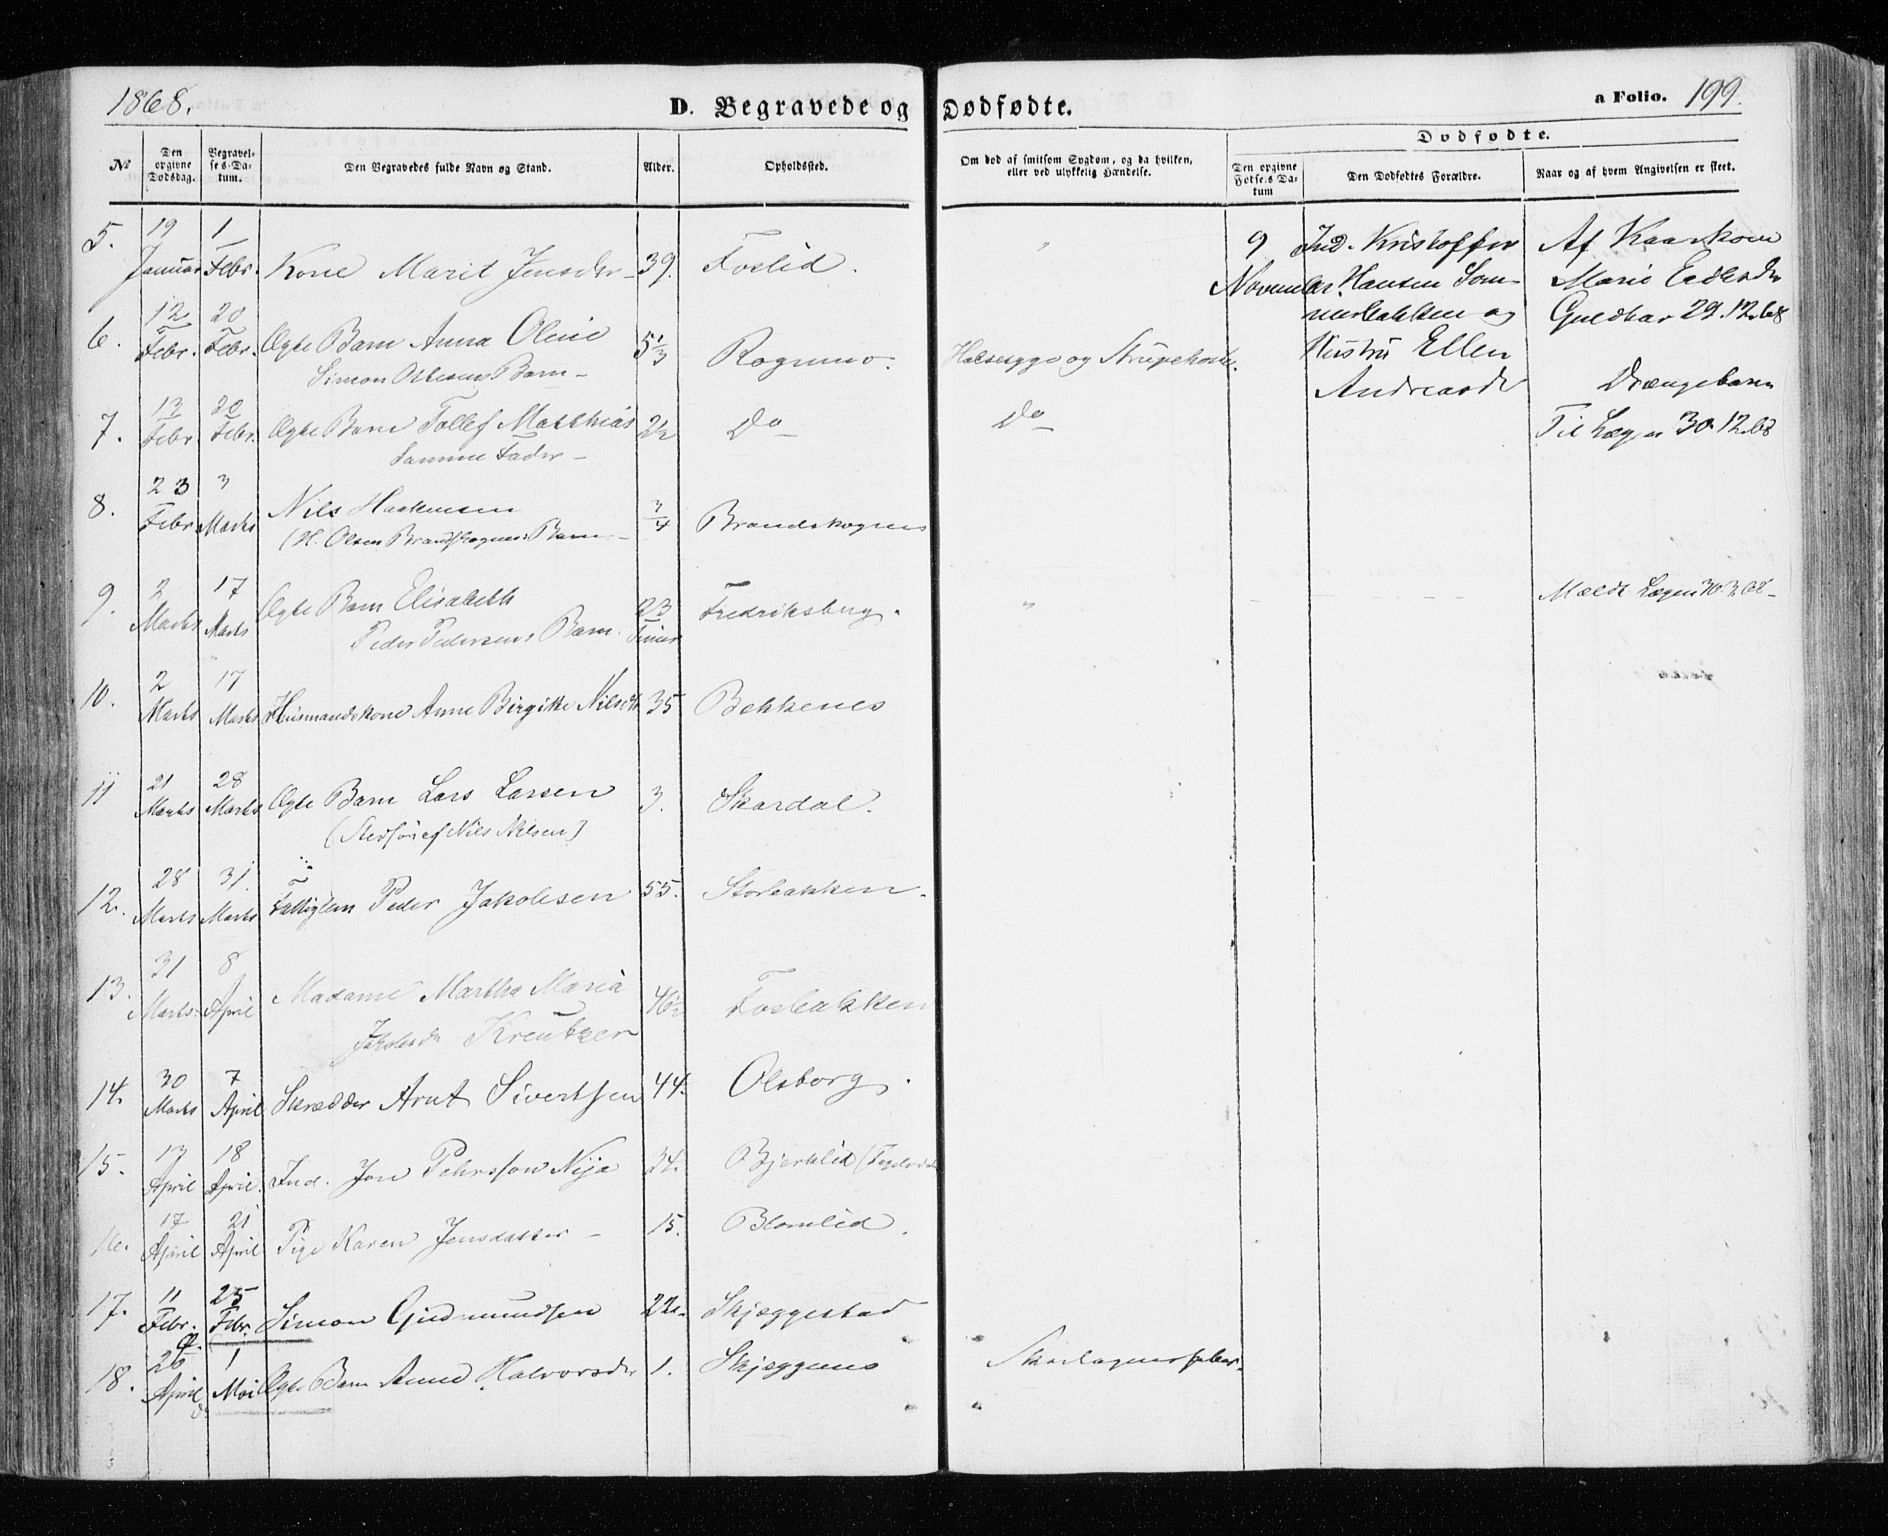 1868.
D. Begravede og Dødfødte.
a Folio. 199.
No
Den opgivne Dødsdag.
Begravelses-Datum.
Den Begravedes fulde Navn og Stand.
Alder.
Opholdssted.
Om død af smitsom Sygdom, og da hvilken, eller ved ulykkelig Hændelse.
Dødfødte.
Den opgivne Fødsels Datum
Den Dødfødtes Forældre.
Naar og af hvem Angivelsen er skeet.
5. 19 Januar 1 Febr. Kone Marit Jensdr 39. Foslid. "
9 November Ind. Kristoffer
Hansen
og
Hustru Ellen
Andreasdr
Af
Marie
29.12.68
Drængebarn
Til Lægen 30.12.68
6. 12 Febr. 20 Febr. Ægte Barn Anna Oline 5 1/3 Rognmo. Halssyge og Strupehoste.
Simon Olsens Barn
7. 13 Febr. 20 Febr. Ægte Barn Tollef Matthias 2 1/2 Do Do
Samme Fader
8. 23 Febr. 3 Marts Nils Haakensen 3/4 Brandskognes
(H. Olsen Brandskognes Barn
9. 2 Marts 17 Marts Ægte Barn Elisabeth 23 Timer Fredriksberg. " Meldt Lægen 30.3.68
Peder Pedersens Barn.
10. 2 Marts 17 Marts Husmandskone Anne Birgitte Nilsdr 35 Bekkenes
11 21 Marts 28 Marts Ægte Barn Lars Larsen 3. Skardal.
(Stedsøn af Nils Nilsen)
12. 28 Marts 31. Marts Fattiglem Peder Jakobsen 55. Storbakken.
13. 31 Marts 8 April Madame Martha Maria 46 1/2 Fosbakken
Jakobsdr Kreutzer
14. 30 Marts 7 April Skrædder Arnt Sivertsen 44. Olsborg.
15. 13 April 18 April Ind. Jon Pehrsson Nija 34. Bjerklid
16. 17 April 21 April Pige Karen Jensdatter 15. Blomlid.
17. 11 Febr. 25 Febr. Simon Gudmundsen 22. Skjæggestad
18. 26 April 1 Mai Ægte Barn Anne Halvorsdr 1. Skjæggenes Skarlagensfeber